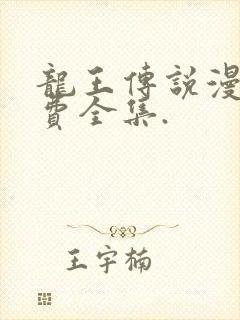 龍王傳說漫
費全集.
王宇楠